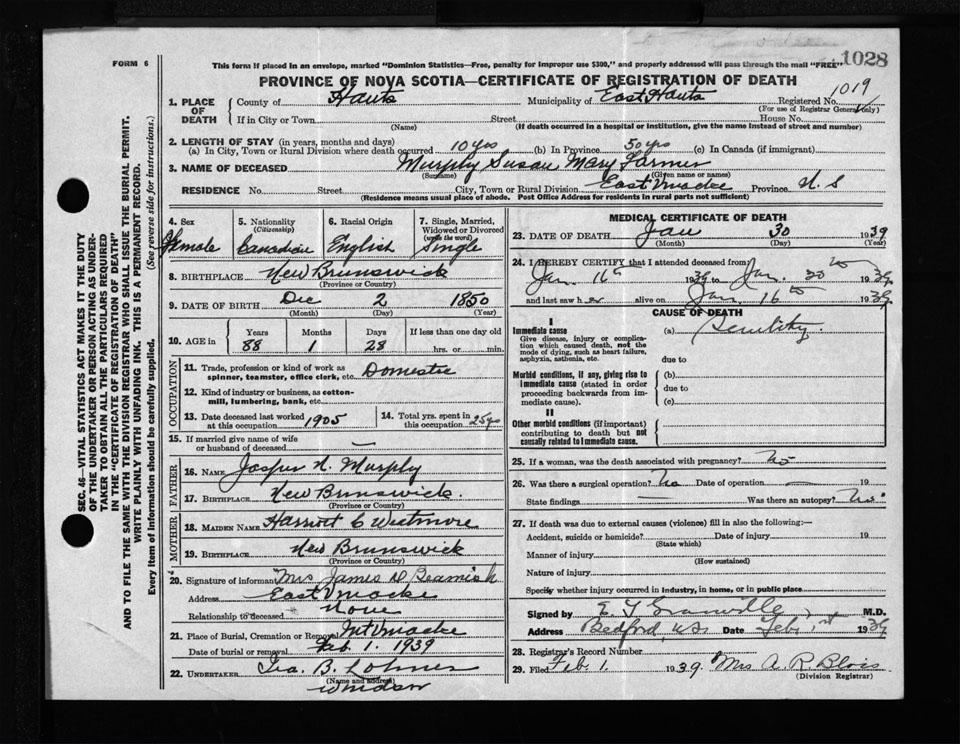 1028
FORM 6
This form if placed in an envelope, marked "Dominion Statistics—Free, penalty for improper use $300," and properly addressed will pass through the mail "FREE"
PROVINCE OF NOVA SCOTIA—CERTIFICATE OF REGISTRATION OF DEATH
1. PLACE OF DEATH County of Hants Municipality of East Hants Registered No. 1019
(For use of Registrar General only)
If in City or Town Street House No.
(Name) (If death occurred in a hospital or institution, give the name instead of street and number)
2. LENGTH OF STAY (in years, months and days)
(a) In City, Town or Rural Division where death occurred 10 yrs (b) In Province 50 yrs (c) In Canada (if immigrant)
3. NAME OF DECEASED Murphy Susan Mary
(Surname) (Given name or names)
RESIDENCE No. Street City, Town or Rural Division East Uniacke Province N. S
(Residence means usual place of abode. Post Office Address for residents in rural parts not sufficient)
4. Sex Female
5. Nationality (Citizenship) Canadian
6. Racial Origin English
7. Single, Married, Widowed or Divorced (write the word) Single
8. BIRTHPLACE New Brunswick
(Province or Country)
9. DATE OF BIRTH Dec 2 1850
(Month) (Day) (Year)
10. AGE in Years Months Days If less than one day old
88 1 28 hrs. or min.
OCCUPATION
11. Trade, profession or kind of work as spinner, teamster, office clerk, etc. Domestic
12. Kind of industry or business, as cotton-mill, lumbering, bank, etc.
13. Date deceased last worked at this occupation 1905
14. Total yrs. spent in this occupation 25 yrs
15. If married give name of wife or husband of deceased —
FATHER
16. NAME Jasper N. Murphy
17. BIRTHPLACE New Brunswick.
(Province or Country)
MOTHER
18. MAIDEN NAME Harriott C Wetmore
19. BIRTHPLACE New Brunswick
(Province or Country)
20. Signature of informant Mrs James D Beamish
Address East Uniacke
Relationship to deceased None
21. Place of Burial, Cremation or Removal Mt Uniacke
Date of burial or removal Feb. 1. 1939
22. UNDERTAKER Ira. B. Lohnes
(Name and address)
Windsor
MEDICAL CERTIFICATE OF DEATH
23. DATE OF DEATH Jan 30 1939
(Month) (Day) (Year)
24. I HEREBY CERTIFY that I attended deceased from
Jan. 16th 1939 to Jan. 30th 1939
and last saw her alive on Jan. 16th 1939
CAUSE OF DEATH
I
Immediate cause (a) Senility.
Give disease, injury or complication which caused death, not the mode of dying, such as heart failure, asphyxia, asthenia, etc.
due to
Morbid conditions, if any, giving rise to immediate cause (stated in order proceeding backwards from immediate cause).
(b)
due to
(c)
II
Other morbid conditions (if important) contributing to death but not causally related to immediate cause.
25. If a woman, was the death associated with pregnancy? No
26. Was there a surgical operation? No Date of operation — 19
State findings — Was there an autopsy? No.
27. If death was due to external causes (violence) fill in also the following:—
Accident, suicide or homicide? Date of injury 19
(State which)
Manner of injury
(How sustained)
Nature of injury
Specify whether injury occurred in industry, in home, or in public place
Signed by E. T. Granville M.D.
Address Bedford, N.S. Date Feb. 1st 1939
28. Registrar's Record Number
29. Filed Feb. 1. 1939. Mrs A R Blois
(Division Registrar)
SEC. 46—VITAL STATISTICS ACT MAKES IT THE DUTY
OF THE UNDERTAKER OR PERSON ACTING AS UNDER-
TAKER TO OBTAIN ALL THE PARTICULARS REQUIRED
IN THE "CERTIFICATE OF REGISTRATION OF DEATH"
AND TO FILE THE SAME WITH THE DIVISION REGISTRAR WHO SHALL ISSUE THE BURIAL PERMIT.
WRITE PLAINLY WITH UNFADING INK. THIS IS A PERMANENT RECORD.
Every item of information should be carefully supplied. (See reverse side for instructions.)